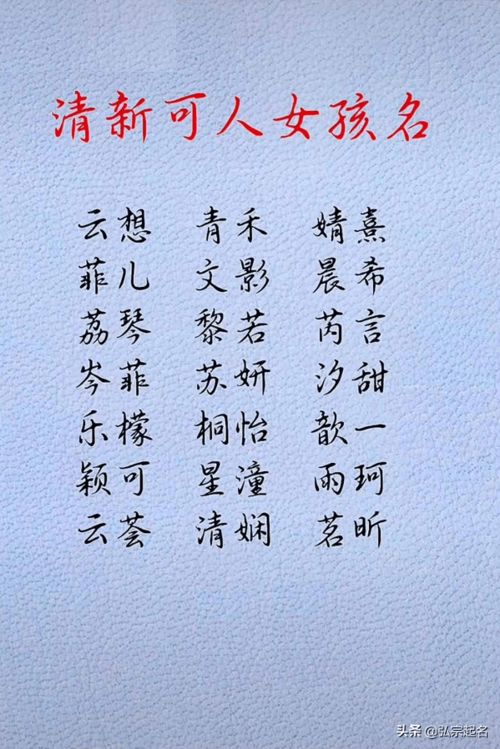 清新可人女孩名
云想 青禾 婧熹
菲儿 文影 晨希
荔琴 黎若 芮言
岑菲 苏妍 汐甜
乐檬 桐怡 歆一
颖可 星潼 雨珂
云荟 清娴 茗昕
头条 @弘宗起名